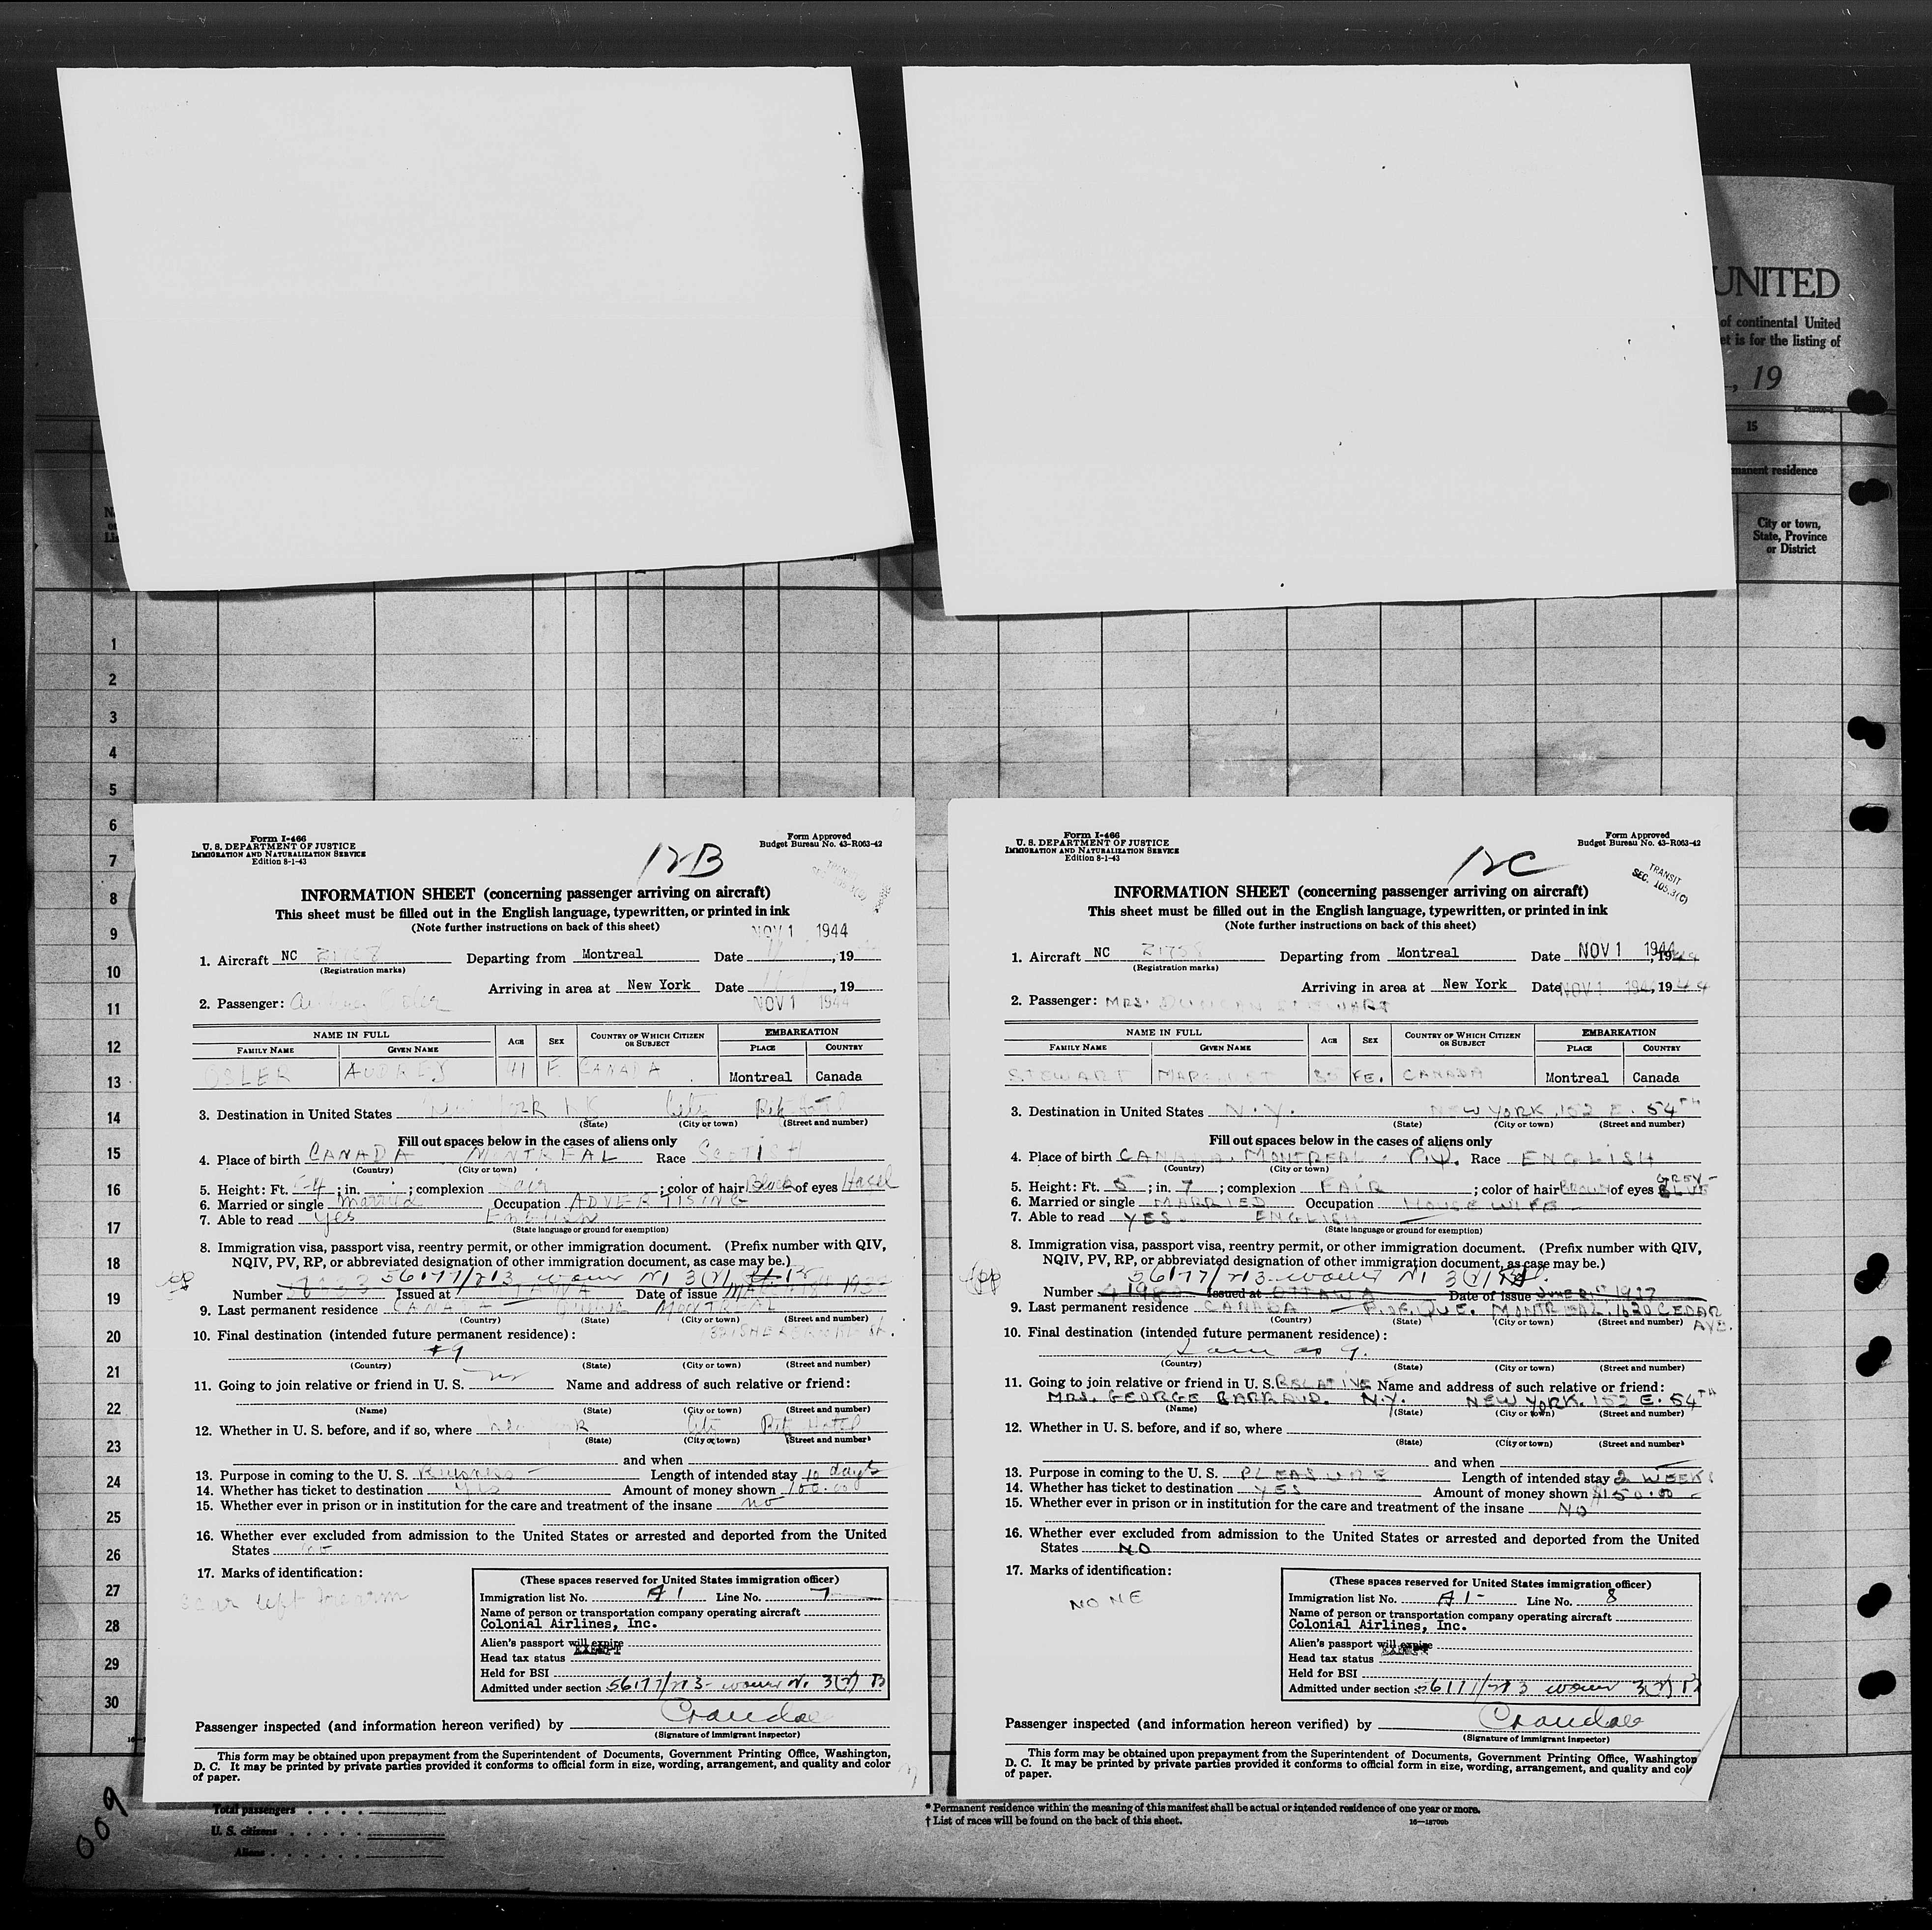 UNITED
of continental United
et is for the listing of
, 19
15
manent residence
City or town,
State, Province
or District
1
2
3
4
5
6
7
8
9
10
11
12
13
14
15
16
17
18
19
20
21
22
23
24
25
26
27
28
29
30
Form I-466
U. S. DEPARTMENT OF JUSTICE
IMMIGRATION AND NATURALIZATION SERVICE
Edition 8-1-43
12B
Form Approved
Budget Bureau No. 43-R063-42
INFORMATION SHEET (concerning passenger arriving on aircraft)
This sheet must be filled out in the English language, typewritten, or printed in ink
(Note further instructions on back of this sheet)
NOV 1 1944
1. Aircraft NC 21758 Departing from Montreal Date , 19
(Registration marks)
Arriving in area at New York Date , 19
NOV 1 1944
2. Passenger: Audrey Osler
NAME IN FULL AGE SEX COUNTRY OF WHICH CITIZEN OR SUBJECT EMBARKATION
FAMILY NAME GIVEN NAME PLACE COUNTRY
OSLER AUDREY 41 F. CANADA Montreal Canada
3. Destination in United States New York City
(State) (City or town) (Street and number)
Fill out spaces below in the cases of aliens only
4. Place of birth CANADA MONTREAL Race SCOTISH
(Country) (City or town)
5. Height: Ft. 5-4; in. ; complexion Fair; color of hair Black of eyes Hazel
6. Married or single Married Occupation ADVERTISING
7. Able to read Yes English
(State language or ground for exemption)
8. Immigration visa, passport visa, reentry permit, or other immigration document. (Prefix number with QIV,
NQIV, PV, RP, or abbreviated designation of other immigration document, as case may be.)
56177/213
Number Issued at OTTAWA Date of issue
9. Last permanent residence CANADA MONTREAL
(Country) (State) (City or town) (Street and number)
10. Final destination (intended future permanent residence):
#9
(Country) (State) (City or town) (Street and number)
11. Going to join relative or friend in U. S. no Name and address of such relative or friend:
(Name) (State) (City or town) (Street and number)
12. Whether in U. S. before, and if so, where New York City Hotel
(State) (City or town) (Street and number)
and when
13. Purpose in coming to the U. S. Business - Length of intended stay 10 days
14. Whether has ticket to destination Yes Amount of money shown 100.00
15. Whether ever in prison or in institution for the care and treatment of the insane no
16. Whether ever excluded from admission to the United States or arrested and deported from the United
States no
17. Marks of identification:
scar left forearm
(These spaces reserved for United States immigration officer)
Immigration list No. A 1 Line No. 7
Name of person or transportation company operating aircraft
Colonial Airlines, Inc.
Alien's passport will expire
Head tax status EXEMPT
Held for BSI
Admitted under section 56177/213
Passenger inspected (and information hereon verified) by Crandall
(Signature of immigrant inspector)
This form may be obtained upon prepayment from the Superintendent of Documents, Government Printing Office, Washington,
D. C. It may be printed by private parties provided it conforms to official form in size, wording, arrangement, and quality and color
of paper.
Form I-466
U. S. DEPARTMENT OF JUSTICE
IMMIGRATION AND NATURALIZATION SERVICE
Edition 8-1-43
12C
Form Approved
Budget Bureau No. 43-R063-42
TRANSIT
SEC. 105.3(C)
INFORMATION SHEET (concerning passenger arriving on aircraft)
This sheet must be filled out in the English language, typewritten, or printed in ink
(Note further instructions on back of this sheet)
1. Aircraft NC 21758 Departing from Montreal Date NOV 1 1944, 1944
(Registration marks)
Arriving in area at New York Date NOV 1 1944, 1944
2. Passenger: MRS. DUNCAN STEWART
NAME IN FULL AGE SEX COUNTRY OF WHICH CITIZEN OR SUBJECT EMBARKATION
FAMILY NAME GIVEN NAME PLACE COUNTRY
STEWART MARGARET FE. CANADA Montreal Canada
3. Destination in United States N.Y. NEW YORK. 152 E. 54TH
(State) (City or town) (Street and number)
Fill out spaces below in the cases of aliens only
4. Place of birth CANADA. MONTREAL. P.Q. Race ENGLISH
(Country) (City or town)
5. Height: Ft. 5; in. 7; complexion FAIR; color of hair BROWN of eyes GREY-BLUE
6. Married or single MARRIED Occupation HOUSEWIFE
7. Able to read YES. ENGLISH
(State language or ground for exemption)
8. Immigration visa, passport visa, reentry permit, or other immigration document. (Prefix number with QIV,
NQIV, PV, RP, or abbreviated designation of other immigration document, as case may be.)
56177/213
Number Issued at OTTAWA Date of issue JUNE 21st 1937
9. Last permanent residence CANADA MONTREAL. 1620 CEDAR AVE.
(Country) (State) (City or town) (Street and number)
10. Final destination (intended future permanent residence):
Same as 9.
(Country) (State) (City or town) (Street and number)
11. Going to join relative or friend in U. S. RELATIVE Name and address of such relative or friend:
MRS. GEORGE BARRAUD. N.Y. NEW YORK. 152 E. 54TH
(Name) (State) (City or town) (Street and number)
12. Whether in U. S. before, and if so, where
(State) (City or town) (Street and number)
and when
13. Purpose in coming to the U. S. PLEASURE Length of intended stay 2 WEEKS
14. Whether has ticket to destination YES Amount of money shown $150.00
15. Whether ever in prison or in institution for the care and treatment of the insane NO
16. Whether ever excluded from admission to the United States or arrested and deported from the United
States NO
17. Marks of identification:
NONE
(These spaces reserved for United States immigration officer)
Immigration list No. A 1- Line No. 8
Name of person or transportation company operating aircraft
Colonial Airlines, Inc.
Alien's passport will expire
Head tax status EXEMPT
Held for BSI
Admitted under section 56177/213
Passenger inspected (and information hereon verified) by Crandall
(Signature of immigrant inspector)
This form may be obtained upon prepayment from the Superintendent of Documents, Government Printing Office, Washington
D. C. It may be printed by private parties provided it conforms to official form in size, wording, arrangement, and quality and col
of paper.
009
Total passengers
U. S. citizens
Aliens
* Permanent residence within the meaning of this manifest shall be actual or intended residence of one year or more.
† List of races will be found on the back of this sheet.
16—18700b